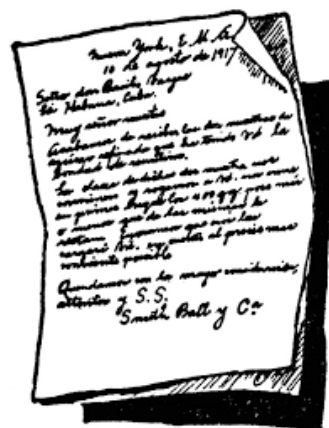 Nueva York, E. U. A.
10 de agosto de 1917
Señor don Basilio Vargas
La Habana, Cuba.
Muy señor nuestro
Acabamos de recibir las dos muestras de
azúcar refinado que ha tenido Vd la
bondad de remitirnos.
La clase
convienen y rogamos a Vd. nos envíe
en primer lugar los 400 qq poco más
o menos que de las mismas le
restan. Esperamos que nos las
cargará Vd. al precio más
conveniente posible
Quedamos con la mayor consideración,
attentos y S. S.
Smith Ball y Cª